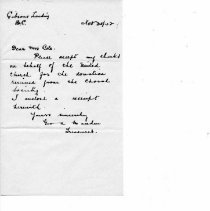 Gibsons Landing
B.C. Nov 20/52
Dear Mrs Cole.
Please accept my thanks
on behalf of the United
Church for the donation
received from the Choral
Society.
I enclose a receipt
herewith.
Yours sincerely
Treasurer.